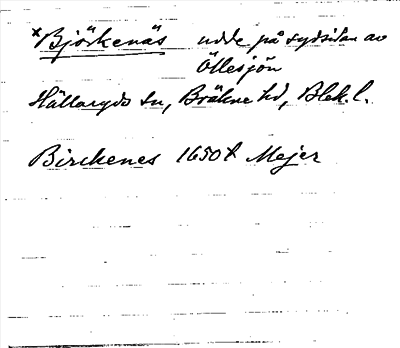 *Björkenäs udde på sydsidan av
Öllesjön
Hällaryds sn, Bräkne hd, Blek. l.
Birckenes 1650t Mejer